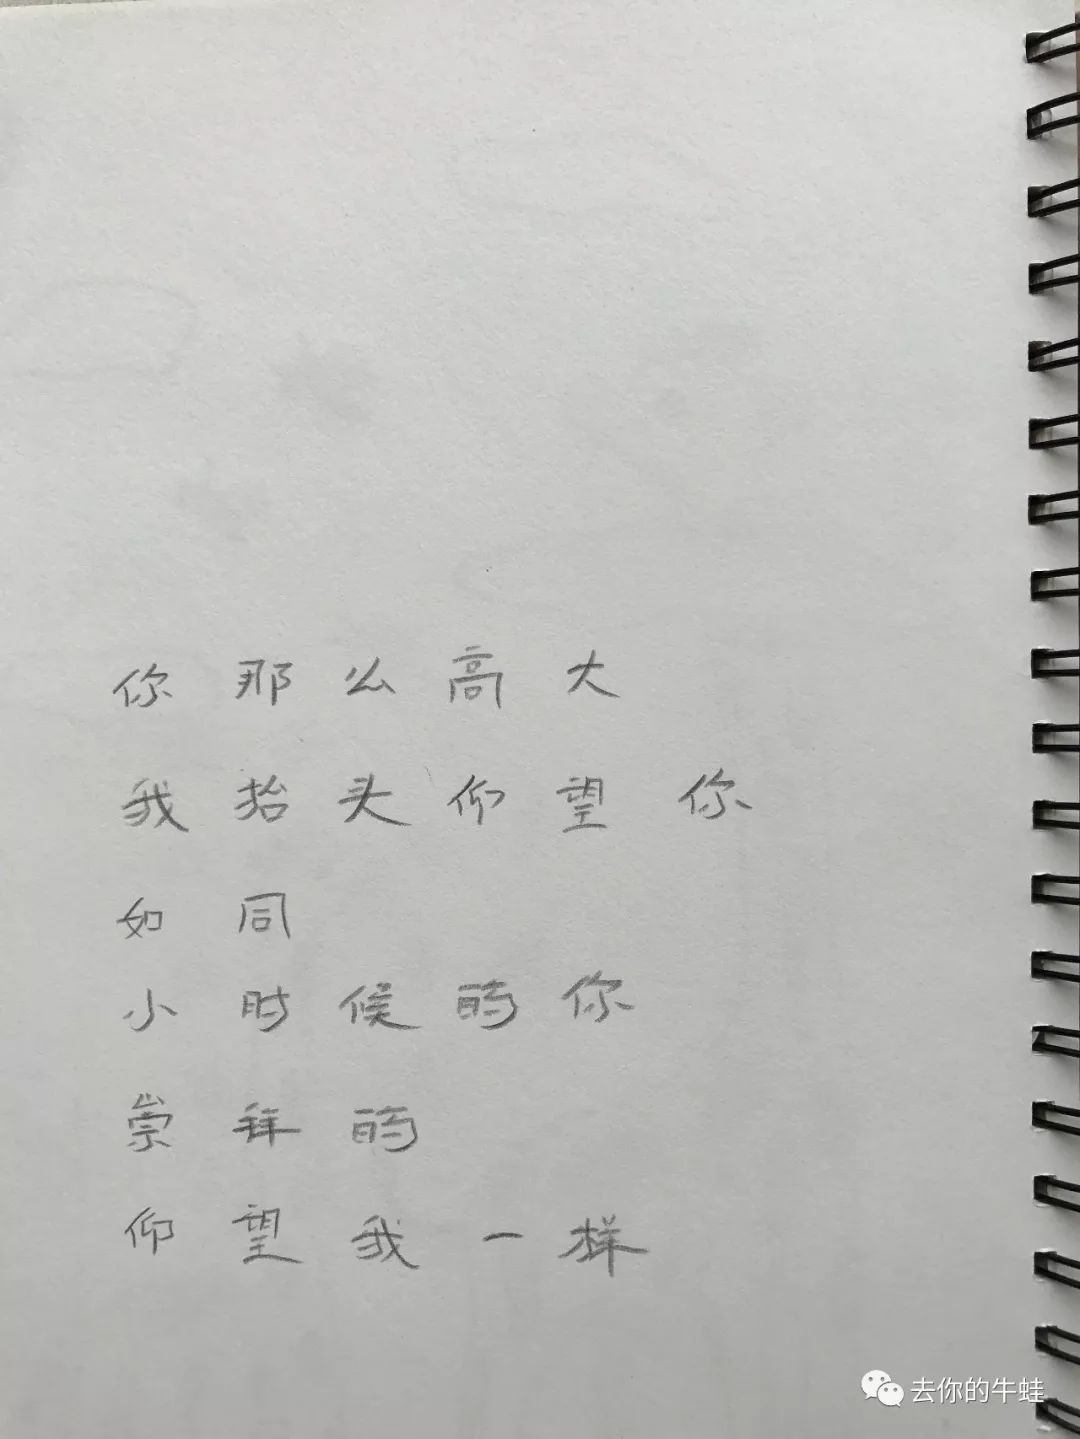 你那么高大
我抬头仰望你
如同
小时候的你
崇拜的
仰望我一样
去你的牛蛙